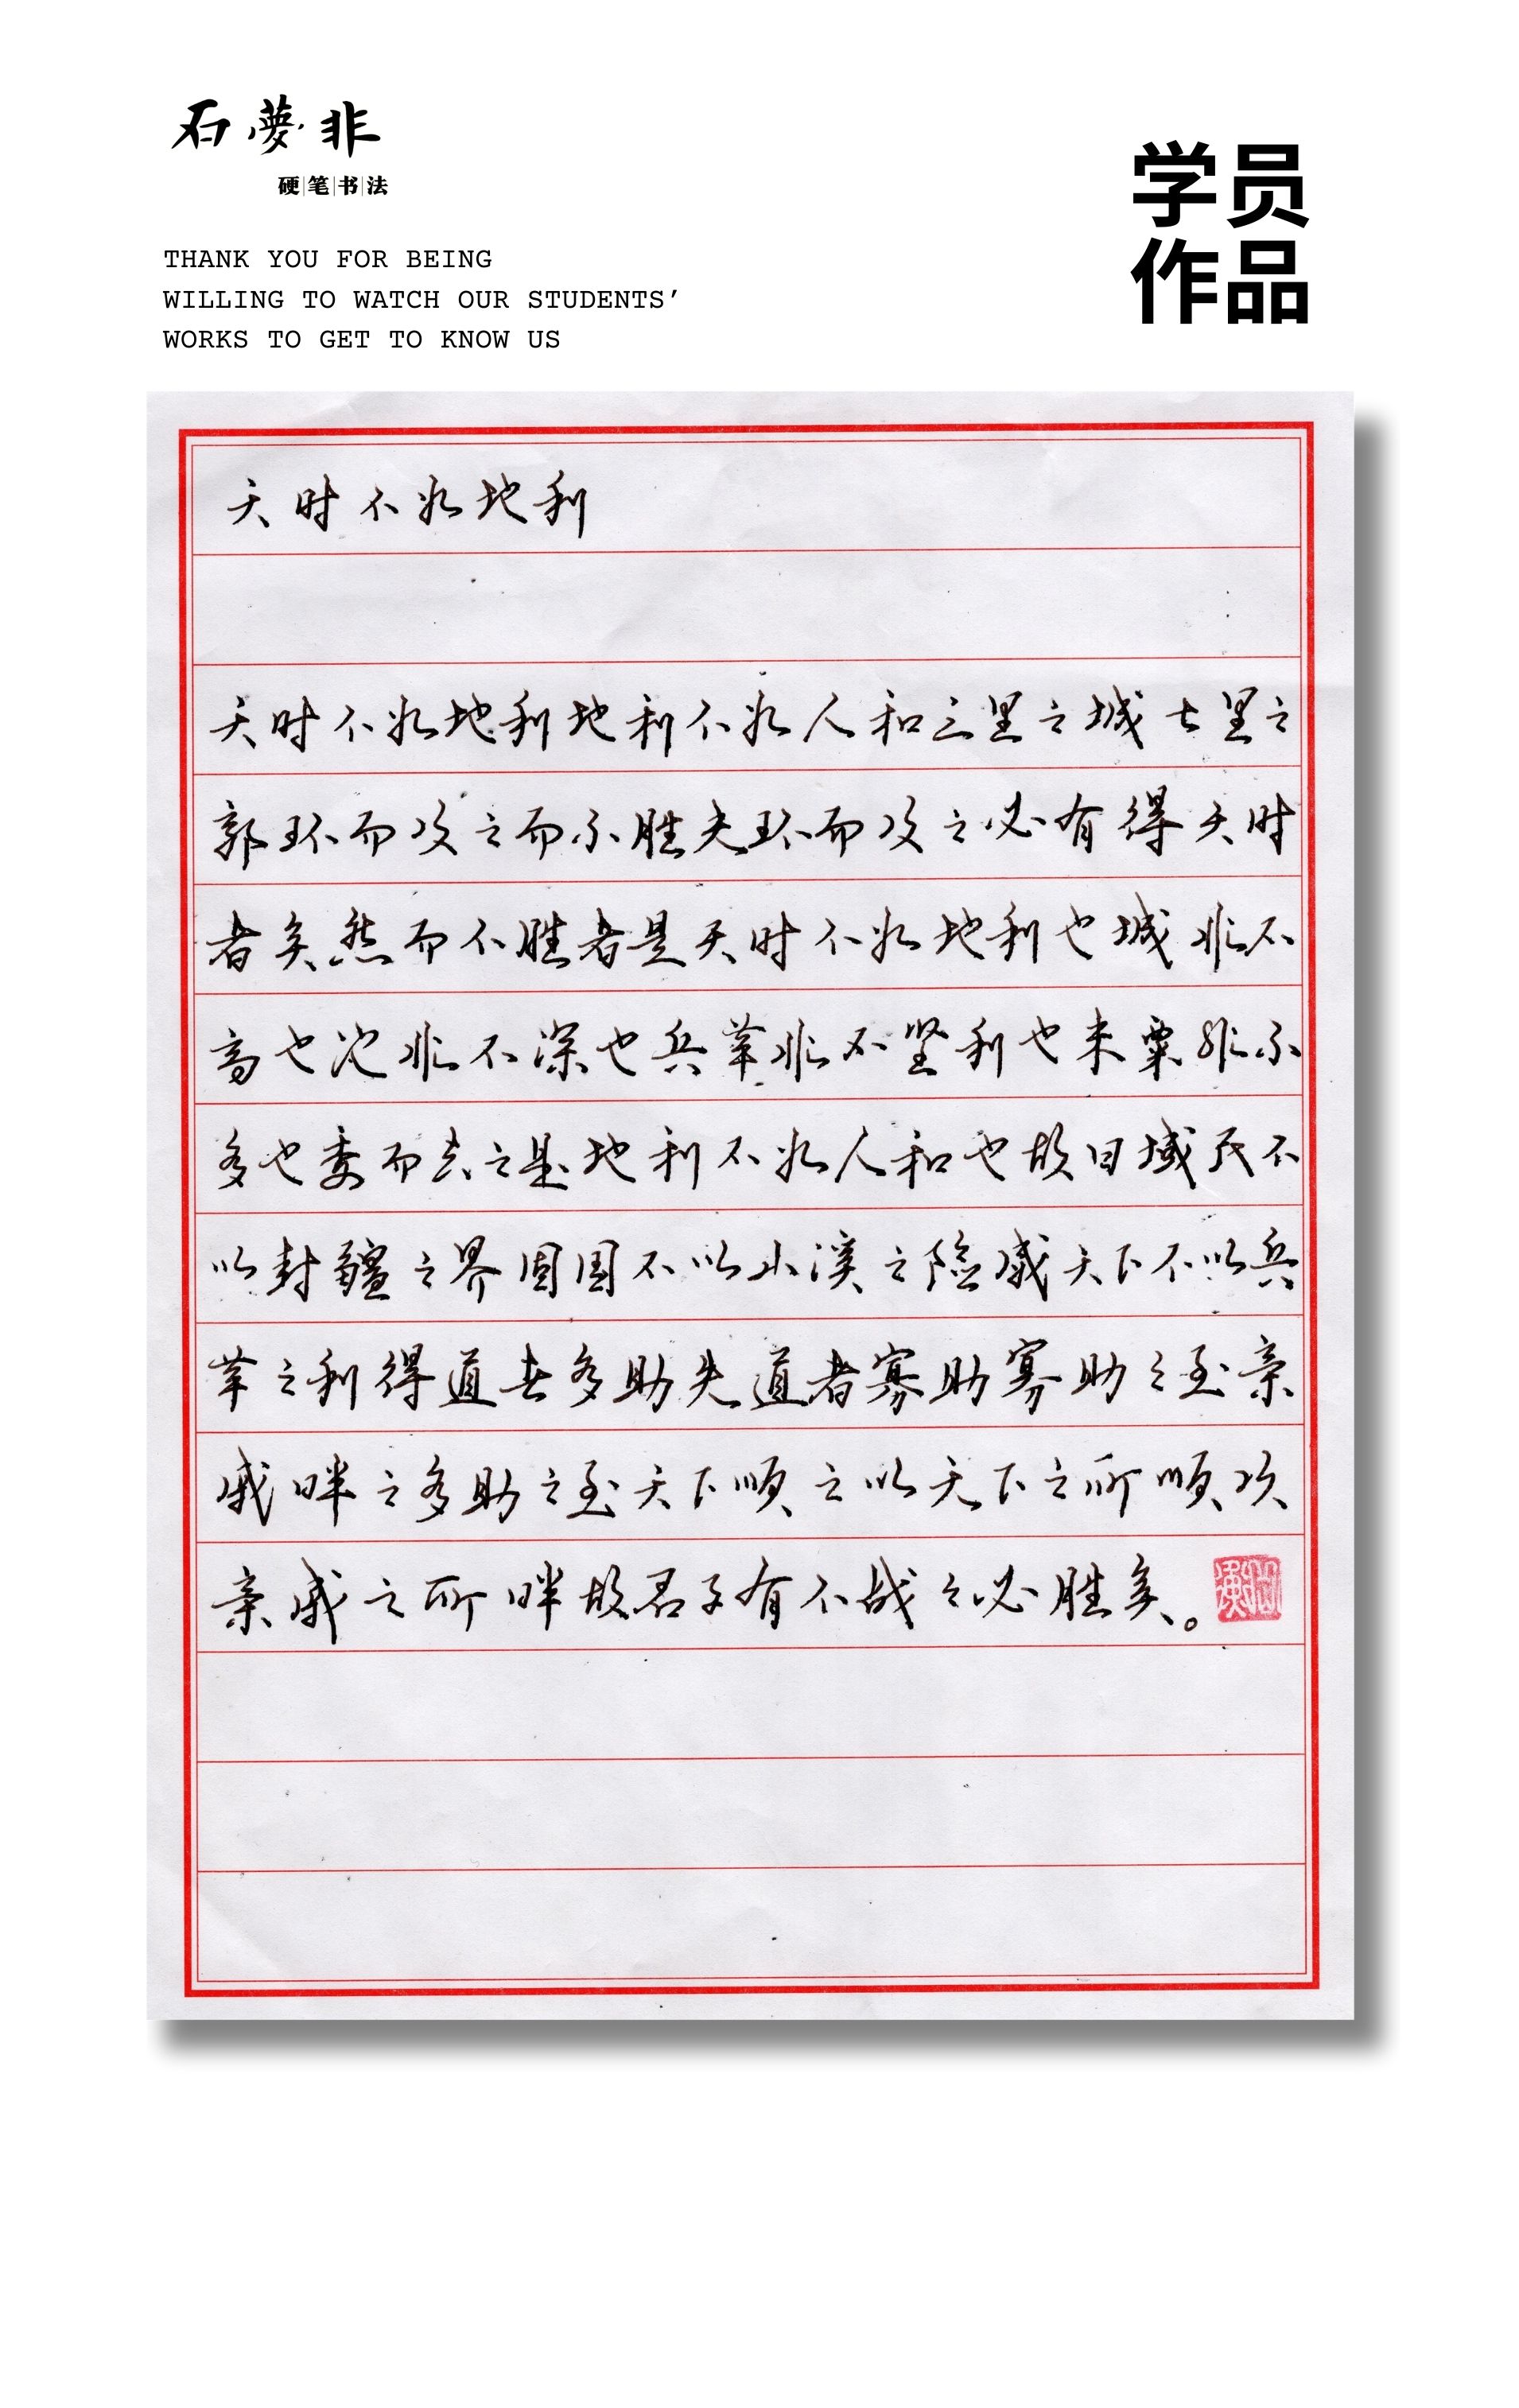 石夢非
硬笔书法
THANK YOU FOR BEING
WILLING TO WATCH OUR STUDENTS'
WORKS TO GET TO KNOW US
学员
作品
天时不如地利
天时不如地利地利不如人和三里之城七里之
郭环而攻之而不胜夫环而攻之必有得天时
者矣然而不胜者是天时不如地利也城非不
高也池非不深也兵革非不坚利也米粟非不
多也委而去之是地利不如人和也故曰域民不
以封疆之界固国不以山溪之险威天下不以兵
革之利得道者多助失道者寡助寡助之至亲
戚畔之多助之至天下顺之以天下之所顺攻
亲戚之所畔故君子有不战之必胜矣。